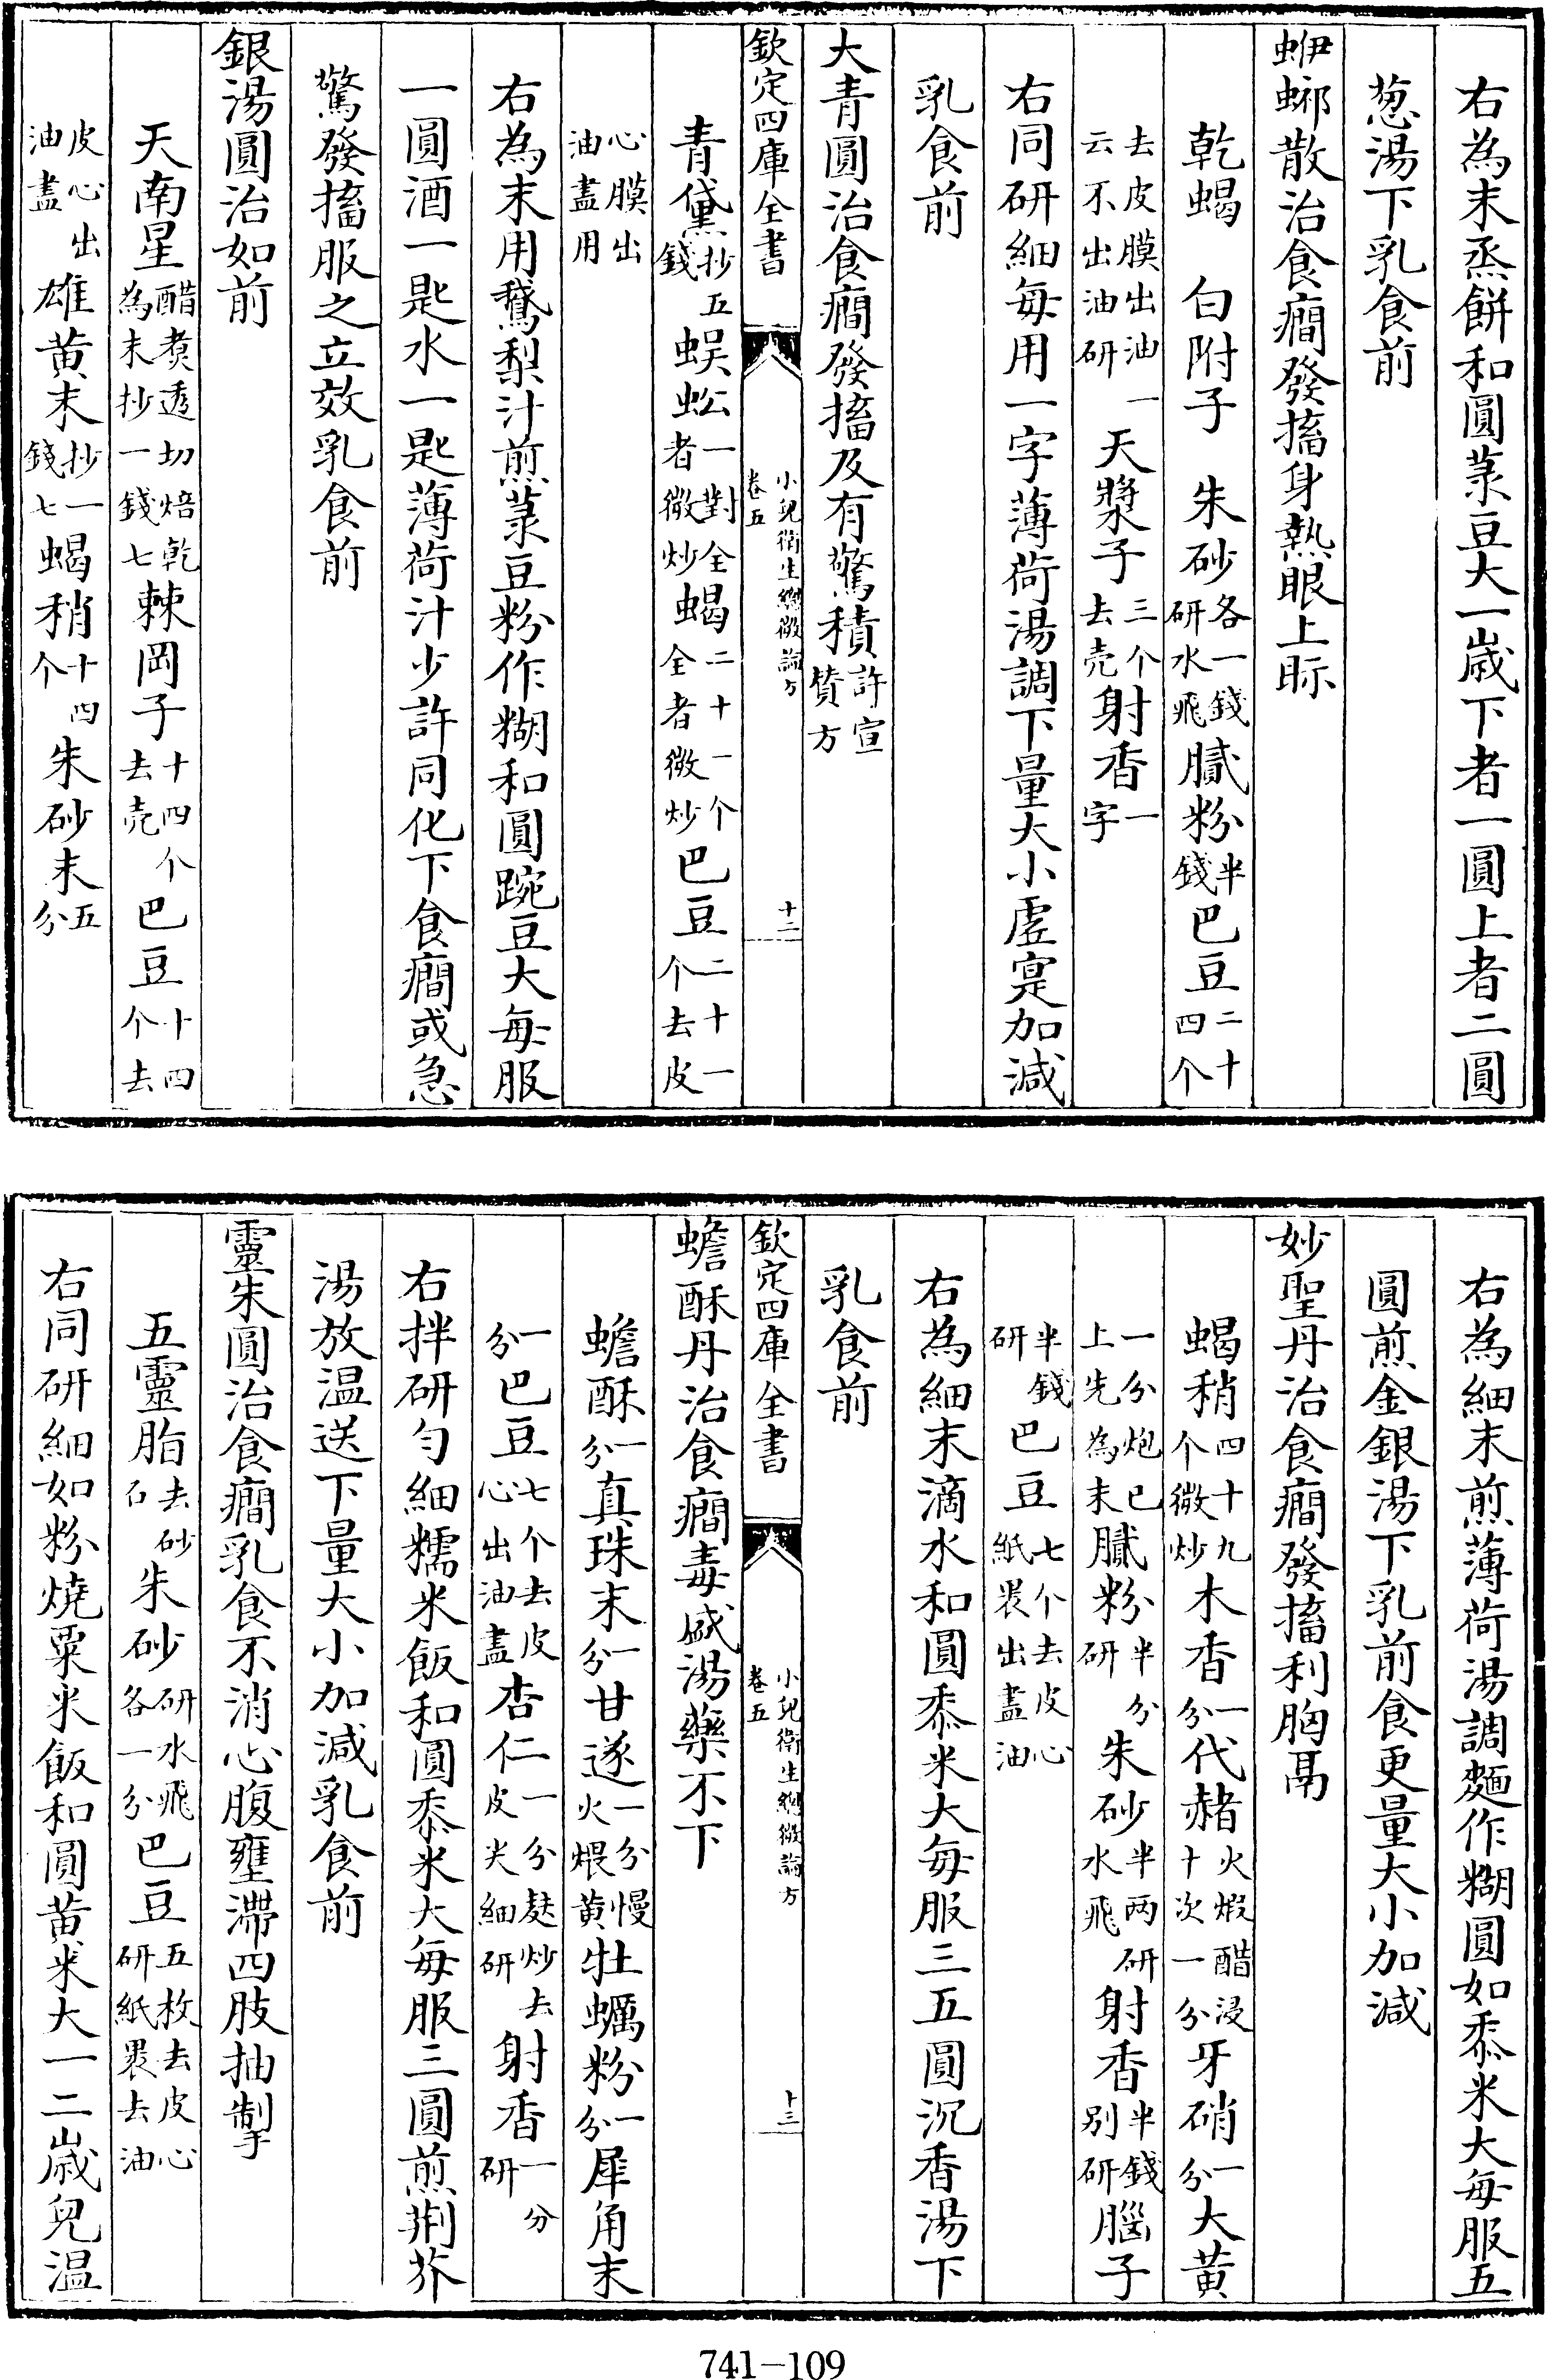 右為末烝餅和圓菉豆大一嵗下者一圓上者二圓
葱湯下乳食前
蛜蝛散治食癎發搐身熱眼上眎
乾蝎 白附子 朱砂各一錢研水飛膩粉半錢巴豆二十四个
去皮膜出油一云不出油研天漿子三个去壳射香一字
右同研細每用一字薄荷湯調下量大小虛寔加減
乳食前
大青圓治食癎發搐及有驚積許宣贊方
欽定四庫全書 小兒衛生總微論方卷五 十二
青黛抄五錢蜈蚣一對全者微炒蝎二十一个全者微炒巴豆二十一个去皮
心膜出油盡用
右為末用鵞梨汁煎菉豆粉作糊和圓踠豆大每服
一圓酒一匙水一匙薄荷汁少許同化下食癎或急
驚發搐服之立效乳食前
銀湯圓治如前
天南星醋煑透切焙乾為末抄一錢七棘岡子十四个去壳巴豆十四个去
皮心出油盡雄黄末抄一錢七蝎稍十四个朱砂末五分
右為細末煎薄荷湯調麵作糊圓如黍米大每服五
圓煎金銀湯下乳前食更量大小加減
妙聖丹治食癎發搐利胸鬲
蝎稍四十九个微炒木香一分代赭火煅醋浸十次一分牙硝一分大黄
一分炮已上先為末膩粉半分研朱砂半两研水飛射香半錢别研腦子
半錢研巴豆七个去皮心紙裹出盡油
右為細末滴水和圓黍米大每服三五圓沉香湯下
乳食前
欽定四庫全書 小兒衛生總微論方卷五 十三
蟾酥丹治食癎毒盛湯藥不下
蟾酥一分真珠末一分甘遂一分慢火煨黄牡蠣粉一分犀角末
一分巴豆七个去皮心出油盡杏仁一分麸炒去皮尖細研射香一分研
右拌研勻細糯米飯和圓黍米大每服三圓煎荆芥
湯放温送下量大小加減乳食前
靈朱圓治食癎乳食不消心腹壅滯四肢抽掣
五靈脂去砂石朱砂研水飛各一分巴豆五枚去皮心研紙裹去油
右同研細如粉燒粟米飯和圓黄米大一二嵗兒温
741-109